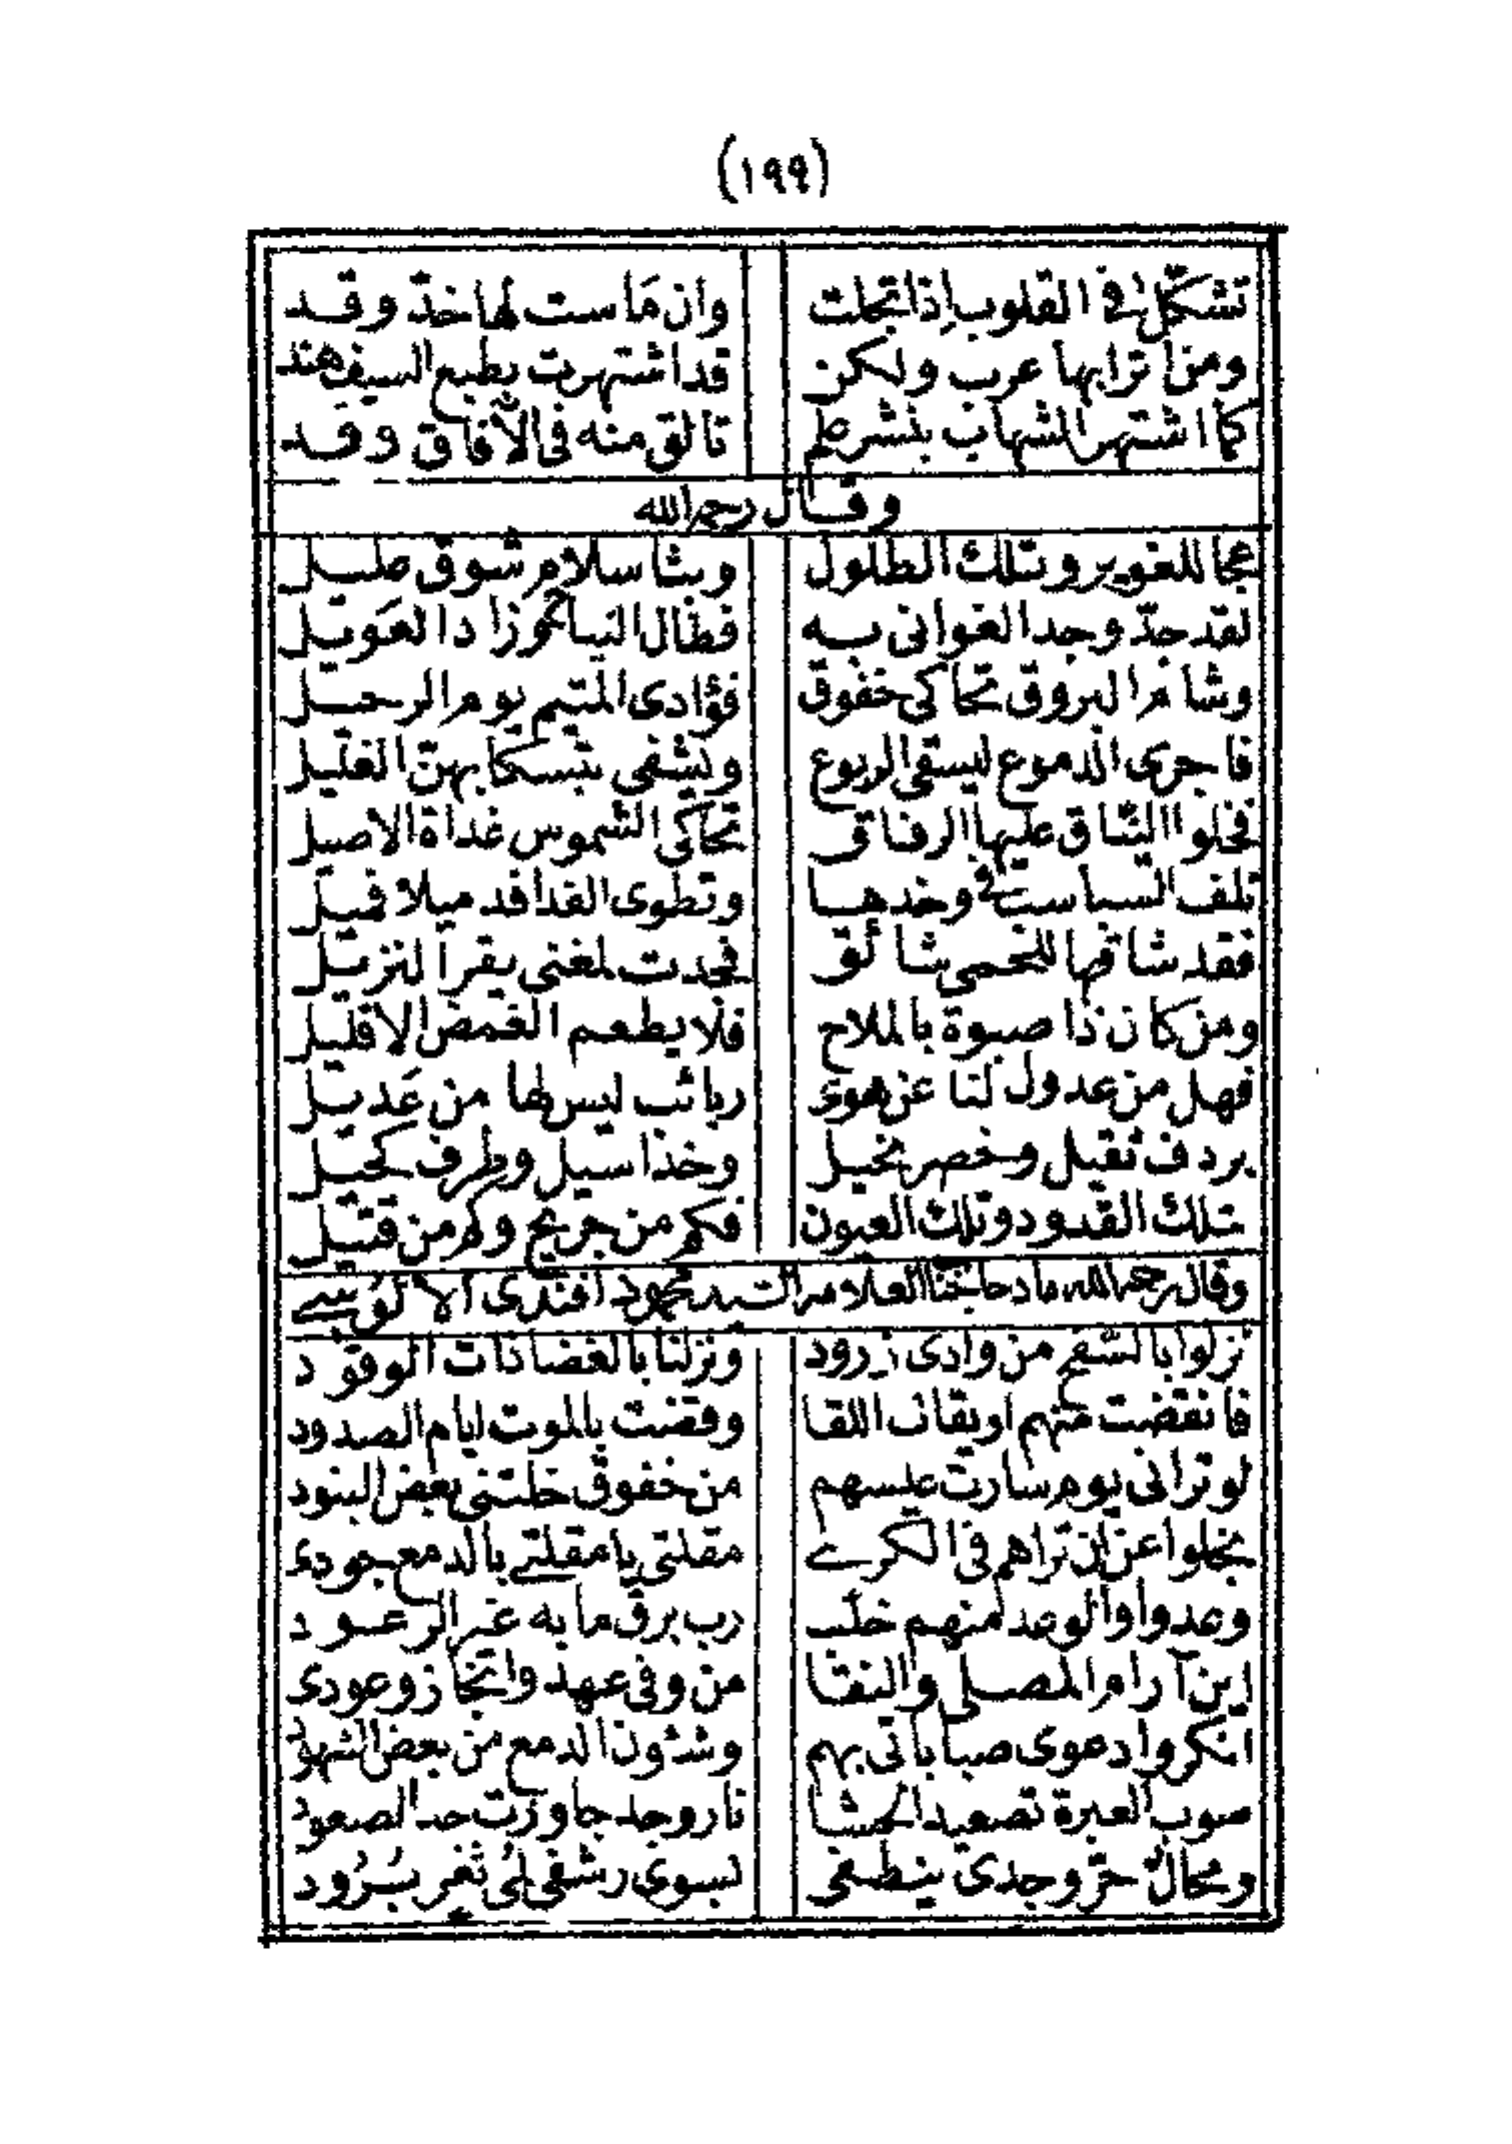 (١٩٩)
تشكل في القلوب إذا تجلت وان ماست لها خد وقد
ومن اترابها عرب ولكن قد اشتهرت بطبع السيف هند
كما اشتهر الشهاب بنشر علم تالق منه فى الآفاق وقد
وقال رحمه الله
عجا للغوير وتلك الطلول وبثا سلام شوق طليل
لقد جد وجد الغوانى به فطال النياح وزاد العويل
وشام البروق تحاكى خفوق فؤادى المتيم يوم الرحيل
فاجرى الدموع ليسقى الربوع ويشفى بتسكابهن الغليل
فخلوا النياق عليها الرفاق تحاكى الشموس غداة الاصيل
تلف السباسب فى وخدها وتطوى الفدافد ميلا فميل
فقد شاقها للحمى شائق فجدت لمغنى بقرا لنزيل
ومن كان ذا صبوة بالملاح فلا يطعم الغمض الا قليل
فهل من عدول لنا عن هوى ربائب ليس لها من عديل
بردف ثقيل وخصر نحيل وخد اسيل وطرف كحيل
بتلك القدود وتلك العيون فكم من جريح وكم من قتيل
وقال رحمه الله مادحا شيخنا العلامه السيد محمود افندى الالوسي
نزلوا بالسفح من وادى زرود ونزلنا بالغضا ذات الوقود
فانقضت منهم اويقات اللقا وقضت بالموت ايام الصدود
لو ترانى يوم سارت عيسهم من خفوق خلتنى بعض البنود
بخلوا عن ان تراهم فى الكرى مقلتى يا مقلتي بالدمع جودى
وعدوا والوعد منهم خلب رب برق ما به غير الرعود
اين آرام المصلى والنقا من وفى عهد وانجاز وعودى
انكروا دعوى صباباتى بهم وشئون الدمع من بعض الشهود
صوب العبرة تصعيد الحشا نار وجد جاوزت حد الصعود
ومحال حر وجدى ينطفى لسوى رشفى لمى ثغر برود